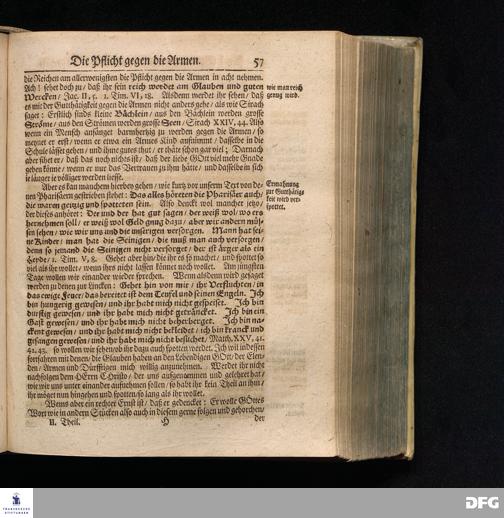 Die Pflicht gegen die Armen. 57
die Reichen am allerwenigsten die Pflicht gegen die Armen in acht nehmen.
Ach! sehet doch zu/ daß ihr sein reich werdet am Glauben und guten
Wercken/ Jac. II, 5. 1. Tim. VI, 18. Alsdenn werdet ihr sehen/ daß
es mit der Gutthätigkeit gegen die Armen nicht anders gehe/ als wie Sirach
saget: Erstlich sinds kleine Bächlein/ aus den Bächlein werden grosse
Ströme/ aus den Strömen werden grosse Seen/ Sirach XXIV, 44. Also
wenn ein Mensch anfänget barmhertzig zu werden gegen die Armen/ so
meynet er erst/ wenn er etwa ein Armes Kind aufnimmt/ dasselbe in die
Schule lässet gehen/ und ihme gutes thut/ er thäte schon gar viel; Darnach
aber sihet er/ daß das noch nichts ist/ daß der liebe GOtt viel mehr Gnade
geben könne/ wenn er nur das Vertrauen zu ihm hätte/ und dasselbe in sich
ie länger ie völliger werden liesse.
wie man reich
genug wird.
Aber es kan manchem hierbey gehen/ wie kurtz vor unserm Text von de-
nen Pharisäern gestehen stehet: Das alles höreten die Pharisäer auch/
die waren geitzig und spotteten sein. Also denckt wol mancher jetzo/
der dieses anhöret: Der und der hat gut sagen/ der weiß wol/ wo ers
hernehmen soll/ er weiß wol Geld gnug dazu/ aber wir andern müs-
sen sehen/ wie wir uns und die unserigen versorgen. Mann hat sei-
ne Kinder/ man hat die Seinigen/ die muß man auch versorgen/
denn so jemand die Seinigen nicht versorget/ der ist ärger als ein
Heyde/ 1. Tim. V, 8. Gehet aber hin/ die ihr es so machet/ und spottet so
viel als ihr wollet/ wenn ihrs nicht lassen könnet noch wollet. Am jüngsten
Tage wollen wir einander wieder sprechen. Wenn alsdenn wird gesaget
werden zu denen zur Lincken: Gehet hin von mir/ ihr Verfluchten/ in
das ewige Feuer/ das bereitet ist dem Teufel und seinen Engeln. Ich
bin hungerig gewesen/ und ihr habt mich nicht gespeiset. Ich bin
durstig gewesen/ und ihr habt mich nicht geträncket. Ich bin ein
Gast gewesen/ und ihr habt mich nicht beherberget. Ich bin na-
cket gewesen/ und ihr habt mich nicht bekleidet/ ich bin kranck und
gefangen gewesen/ und ihr habt mich nicht besuchet/ Matth. XXV, 41.
42. 43. so wollen wir sehen/ ob ihr dazu auch spotten werdet. Ich wil indessen
fortfahren mit denen/ die Glauben haben an den Lebendigen GOtt/ der Elen-
den/ Armen und Dürfftigen mich willig anzunehmen. Werdet ihr nicht
nachfolgen dem HErrn Christo/ der uns aufgenommen und gelehret hat/
wie wir uns unter einander aufnehmen sollen/ so habt ihr kein Theil an ihm/
ihr möget nun hingehen und spotten/ so lang als ihr wollet.
Ermahnung
zur Gutthätig-
keit wird ver-
spottet.
Wems aber ein rechter Ernst ist/ daß er gedencket: Er wolle GOttes
Wort wie in andern Stücken also auch in diesem gerne folgen und gehorchen/
II. Theil. H der
FRANCKESCHE
STIFTUNGEN
DFG